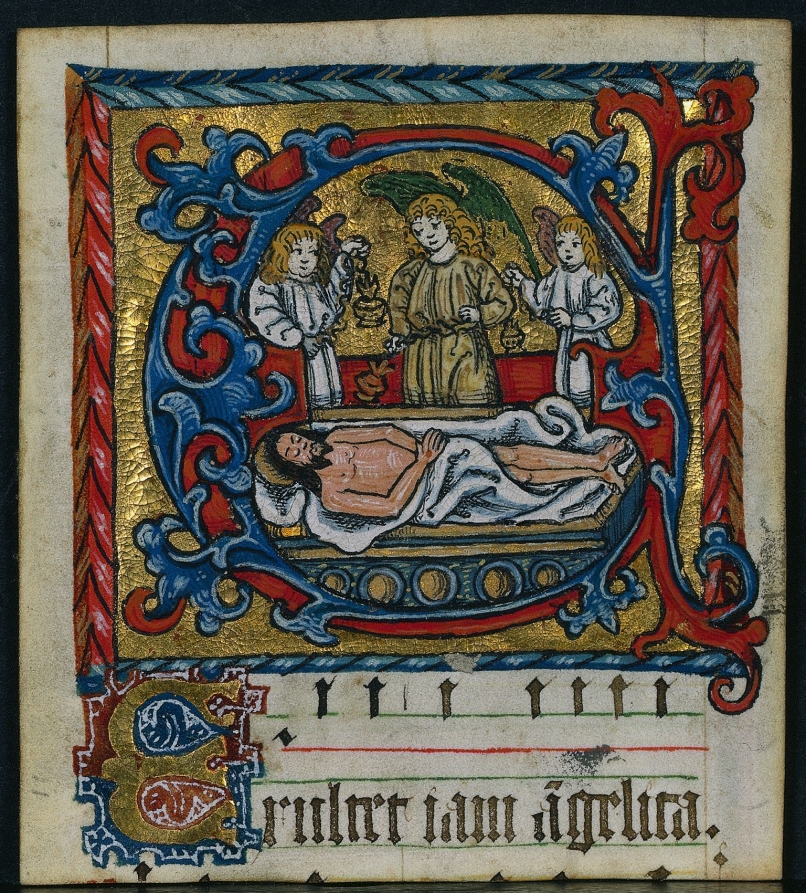 Exultet iam āgelica.